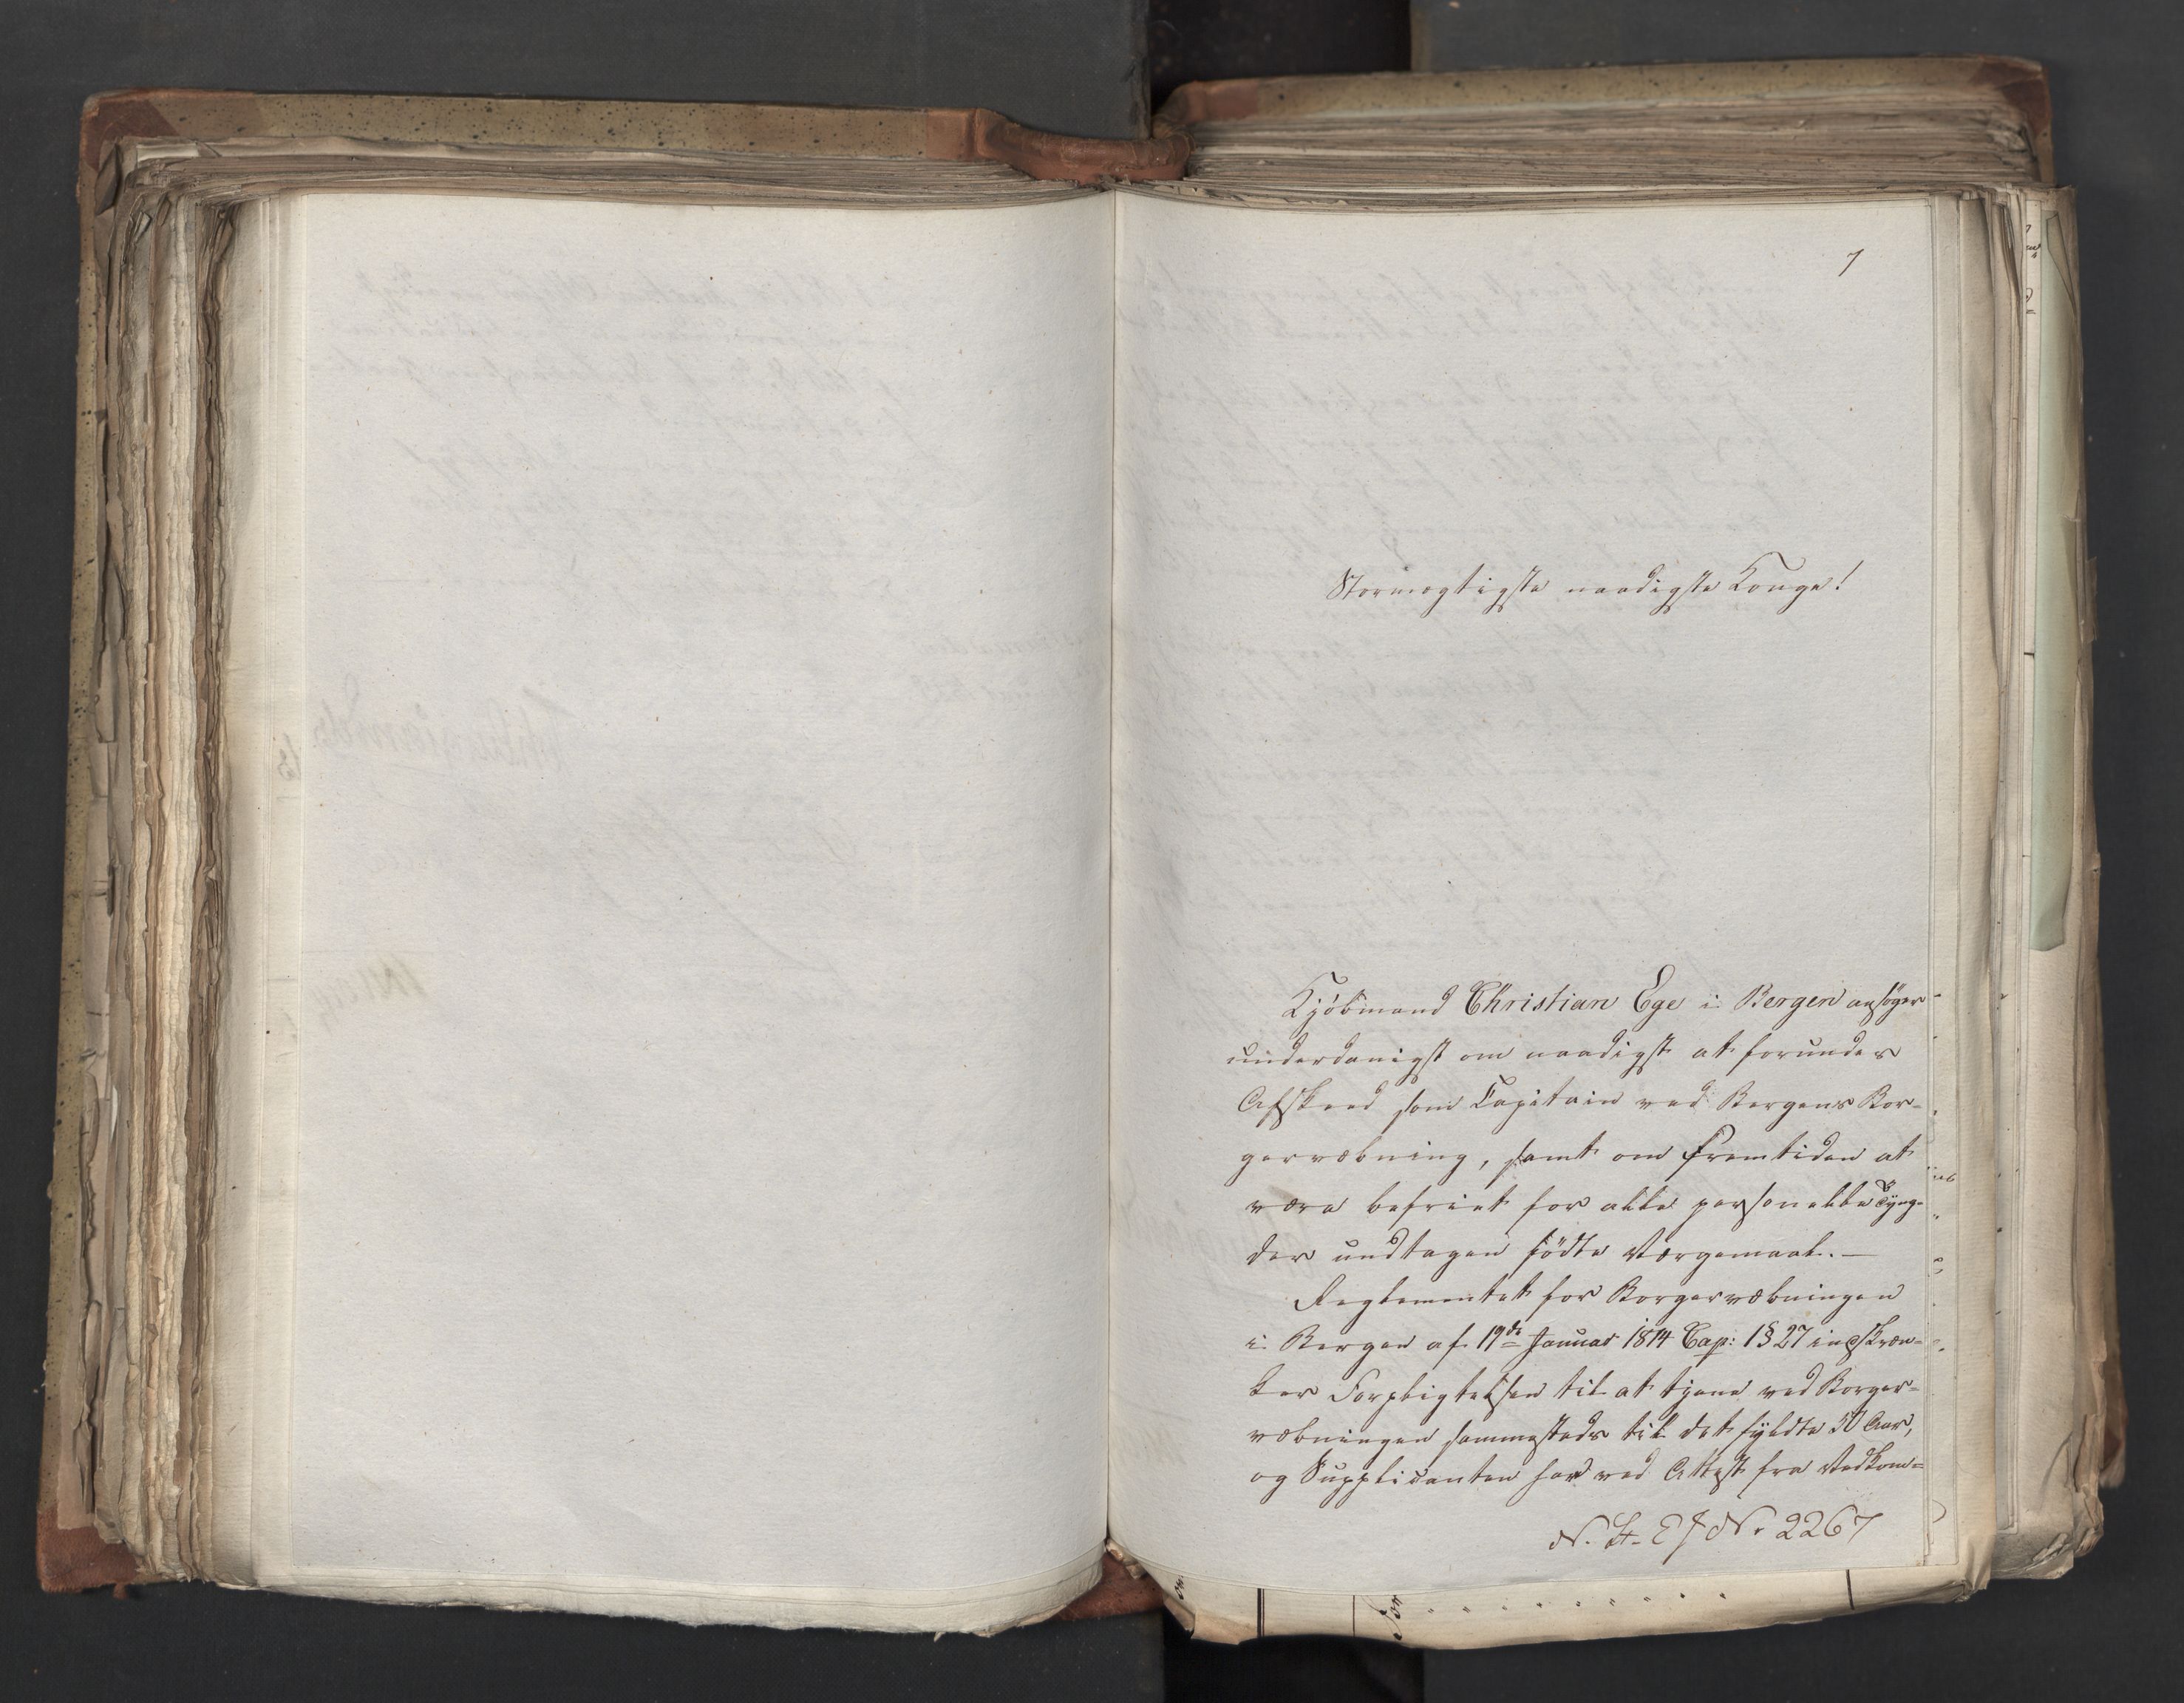 7
Stormægtigste naadigste Konge!
Kjöbmand Christian Ege i Bergen ansöger
underdanigst om naadigst at forundes
Afskeed som Capitain ved Bergens Bor-
gervæbning, samt om fremtiden at
være befriet for alle personelle Tyng-
der undtagen födte Værgemaal. —
Reglementet for Borgervæbningen
i Bergen af 19de Januar 1814 Cap: 1 § 27 indskræn-
ker Forpligtelsen til at tjene ved Borger-
væbningen sammesteds til det fyldte 50 Aar,
og Supplicanten har ved Attest fra Vedkom-
No. 2267